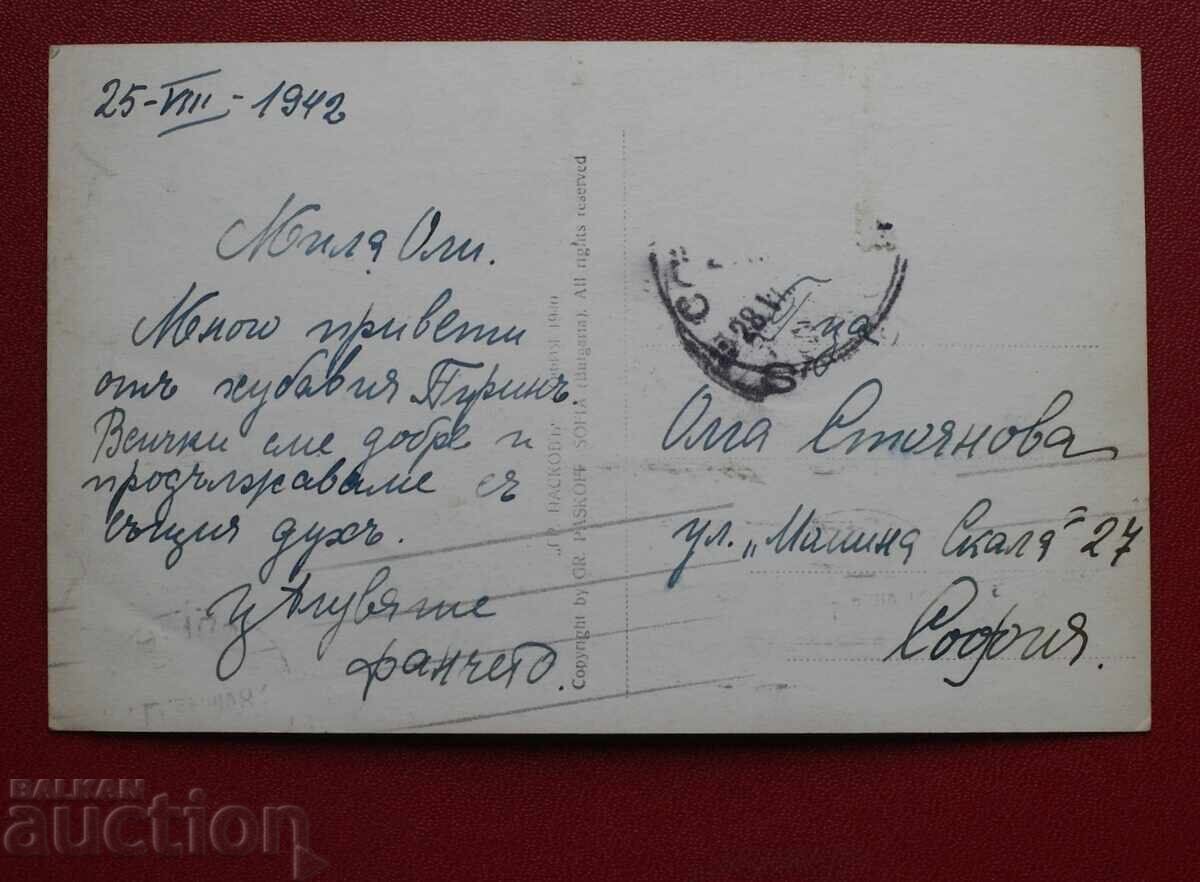 25-VIII-1942
Мила Оли.
Много привети
отъ хубавия Пиринъ.
Всички сме добре и
продължаваме съ
същия духъ.
Цѣлува те
Фанчето.
ПАСКОВЪ
1940
Copyright by GR. PASKOFF SOFIA (Bulgaria). All rights reserved
28.VI
на
Олга Стоянова
ул. „Малина Скала“ 27
София.
BALKAN
auction